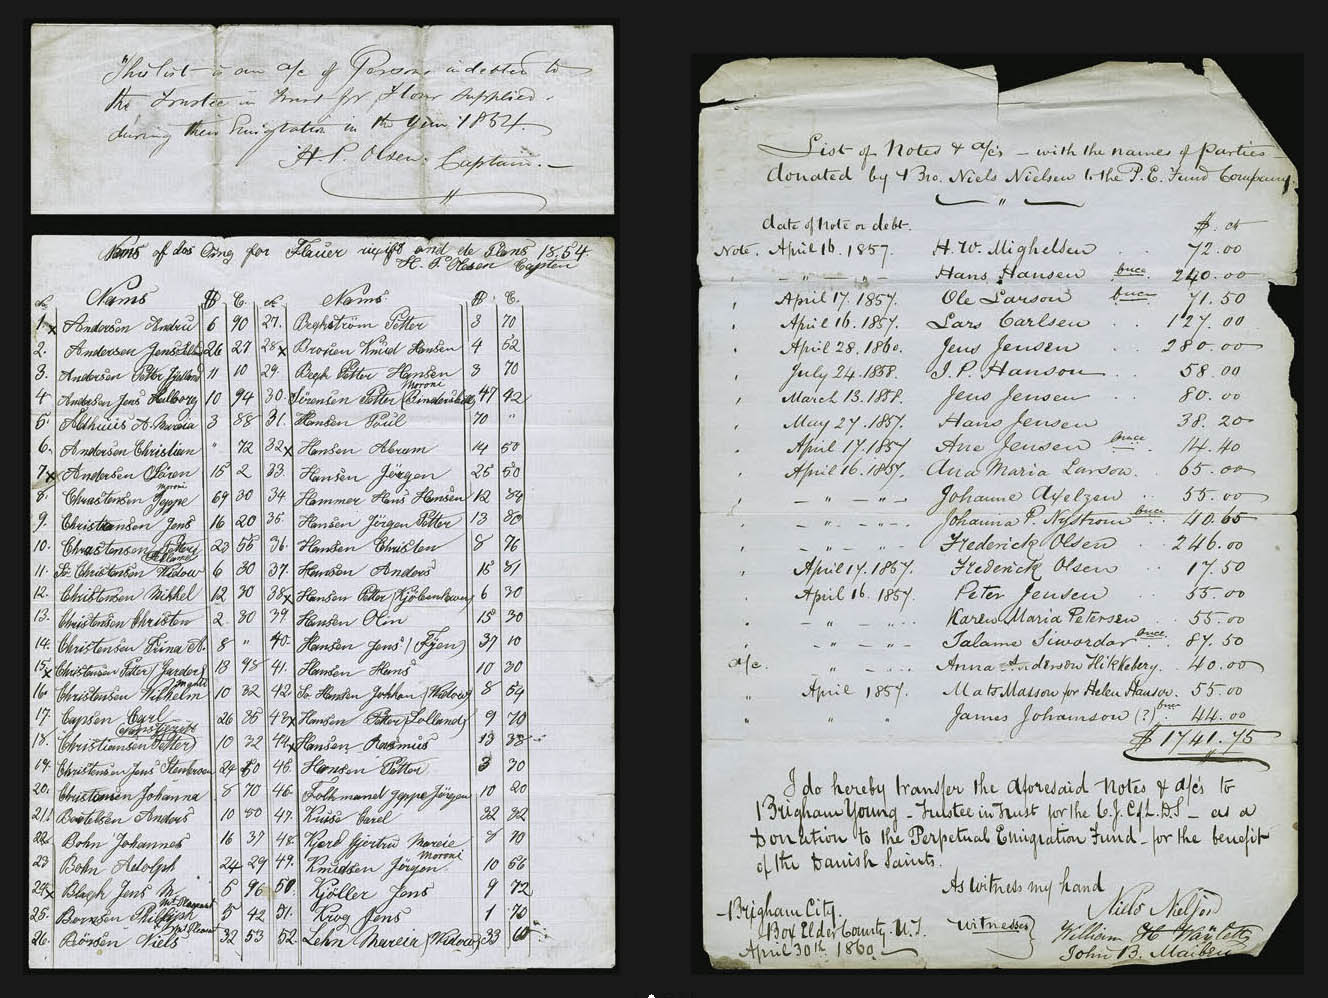 This list is an a/c of Persons indebted to
the Trustee in Trust for Flour supplied
during their Emigration in the Year 1854.
H. P. Olsen. Captain.
Nams of das Cing for Flauer and de Plens 18.54.
H. P. Olesen Capten
№ Nams $ C. № Nams $ C.
1. x Andersen Andru 6 90 27. Berghström Petter 3 70
2. Andersen Jens 26 27 28 x Brouen Knud Hansen 4 52
3. Andersen Petter 11 10 29. Begh Petter Hansen 3 70
4 Andersen Jens 10 94 30. Sörensen Petter Moroni 47 92
5 A. Mareia 3 88 31. Hansen Poul 70 "
6. Andersen Christian " 72 32 x Hansen Abrum 14 50
7 x Andersen Sören 15 2 33 Hansen Jörgen 25 50
8. Chrastensen Jeppe Moroni 69 30 34 Hammer Hans Hansen 12 84
9. Christiansen Jens 16 20 35. Hansen Jörgen Petter 13 80
10. Chrastensen Petter 23 55 36. Hansen Christen 8 76
11. Sr. Christensen Widow 6 30 37. Hansen Anders 15 81
12. Christensen Mikkel 12 30 38 x Hansen Petter 6 30
13. Christensen Christen 2. 30 39 Hansen Olin 15 30
14. Christensen Stina A. 8 " 40. Hansen Jens (Fÿen) 37 10
15 x Christensen Petter 13 98 41. Hansen Hans 10 30
16 Christensen Wilhelm 10 32 42 Sr. Hansen (Widow) 8 54
17. Capsen Carl 26 35 43 x Hansen Petter (Lolland) 9 70
18. Christiansen Petter 10 32 44 x Hansen Rasmus 13 38
19. Christensen Jens 24 80 45. Hansen Petter 3 30
20. Christensen Johanna 8 70 46 Jeppe Jörgen 10 20
21. Boetelsen Anders 10 50 47. Kruse Carel 32 32
22. Bohn Johannes 16 37 48. Kjerd Gjertru Mareie 8 70
23 Bohn Adolph 24 29 49. Knudsen Jörgen Moroni 10 56
24 x Blegh Jens M. 5 96 50. Kjöller Jens 9 72
25. Bensen Philiph 5 42 51. Krog Jens 1 70
26. Börsen Niels 32 53 52. Lehn Mareia (Widow) 33 60
List of Notes & a/cs – with the names of parties
donated by Bro. Niels Nielsen to the P. E. Fund Company.
date of Note or debt. $. ct
Note. April 16. 1857. H. W. Mighelsen 72.00
" " - " - " - Hans Hansen bnce 240.00
" April 17. 1857. Ole Larson bnce 71.50
" April 16. 1857. Lars Carlsen 127.00
" April 28. 1860. Jens Jensen 280.00
" July 24. 1858. J. P. Hanson 58.00
" March 13. 1858. Jens Jensen 80.00
" May 27. 1857. Hans Jensen 38.20
" April 17. 1857 Ane Jensen bnce 14.40
" April 16. 1857. Ana Maria Larson. 65.00
" - " - " - Johanne Axelzen 55.00
" - " - " - Johanna P. Nystrom bnce 40.65
" - " - " - Frederick Olsen 246.00
" April 17. 1857. Frederick Olsen 17.50
" April 16. 1857. Peter Jensen 55.00
" - " - " - Karen Maria Petersen 55.00
" - " - " - Salame Siwordar bnce 87.50
a/c. " - " - Anna Anderson Hikkebery. 40.00
" April 1857. Mats Masson for Helen Hanson. 55.00
" " " James Johamson (?) bnce 44.00
$1741.75
I do hereby transfer the aforesaid Notes & a/cs to
Brigham Young – Trustee in Trust for the C. J. C. of L. D. S – as a
Donation to the Perpetual Emigration Fund – for the benefit
of the Danish Saints.
As witness my hand
Niels Nielsen
Brigham City.
Box Elder County. U.T. witnesses William H
April 30th 1860 John B.